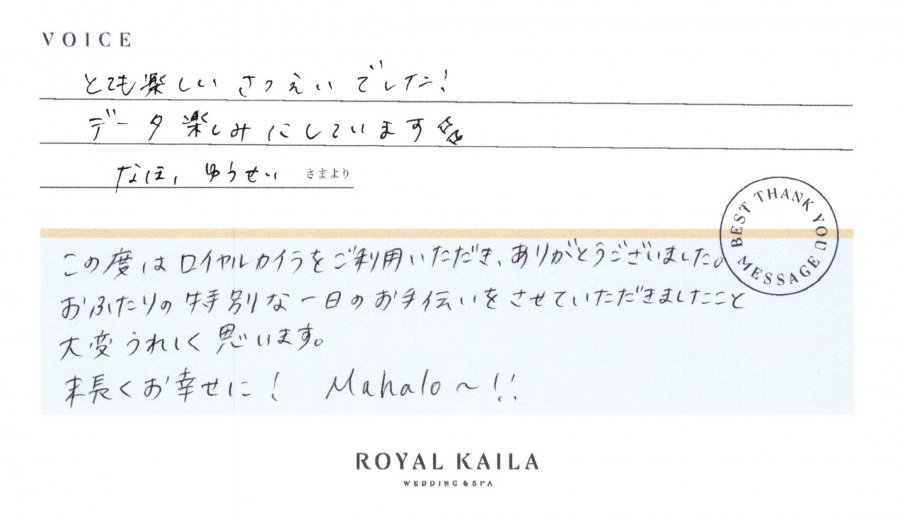 VOICE
とても楽しい さつえい でした!
データ楽しみにしています
なほ, ゆうせい さまより
BEST THANK YOU MESSAGE
この度は ロイヤルカイラをご利用いただき、ありがとうございました。
おふたりの特別な一日のお手伝いをさせていただきましたこと
大変うれしく思います。
末長くお幸せに! Mahalo～!!
ROYAL KAILA
WEDDING & SPA